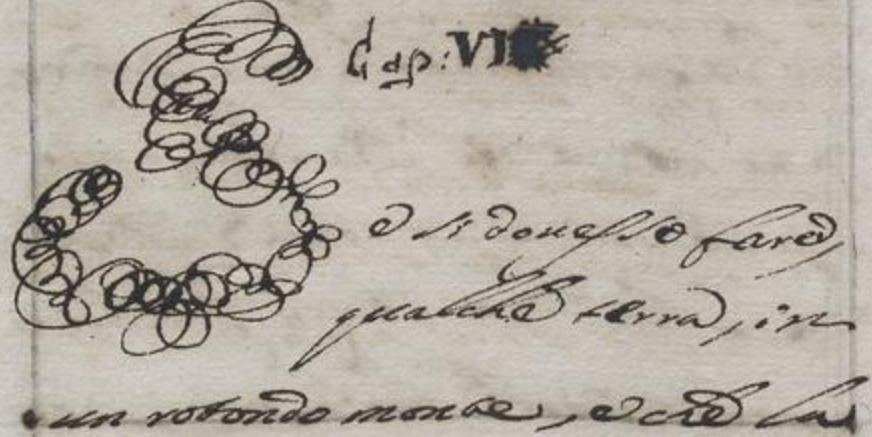 Cap: VI
Se si douesse fare,
qualche terra, in
un rotondo monte, e che la